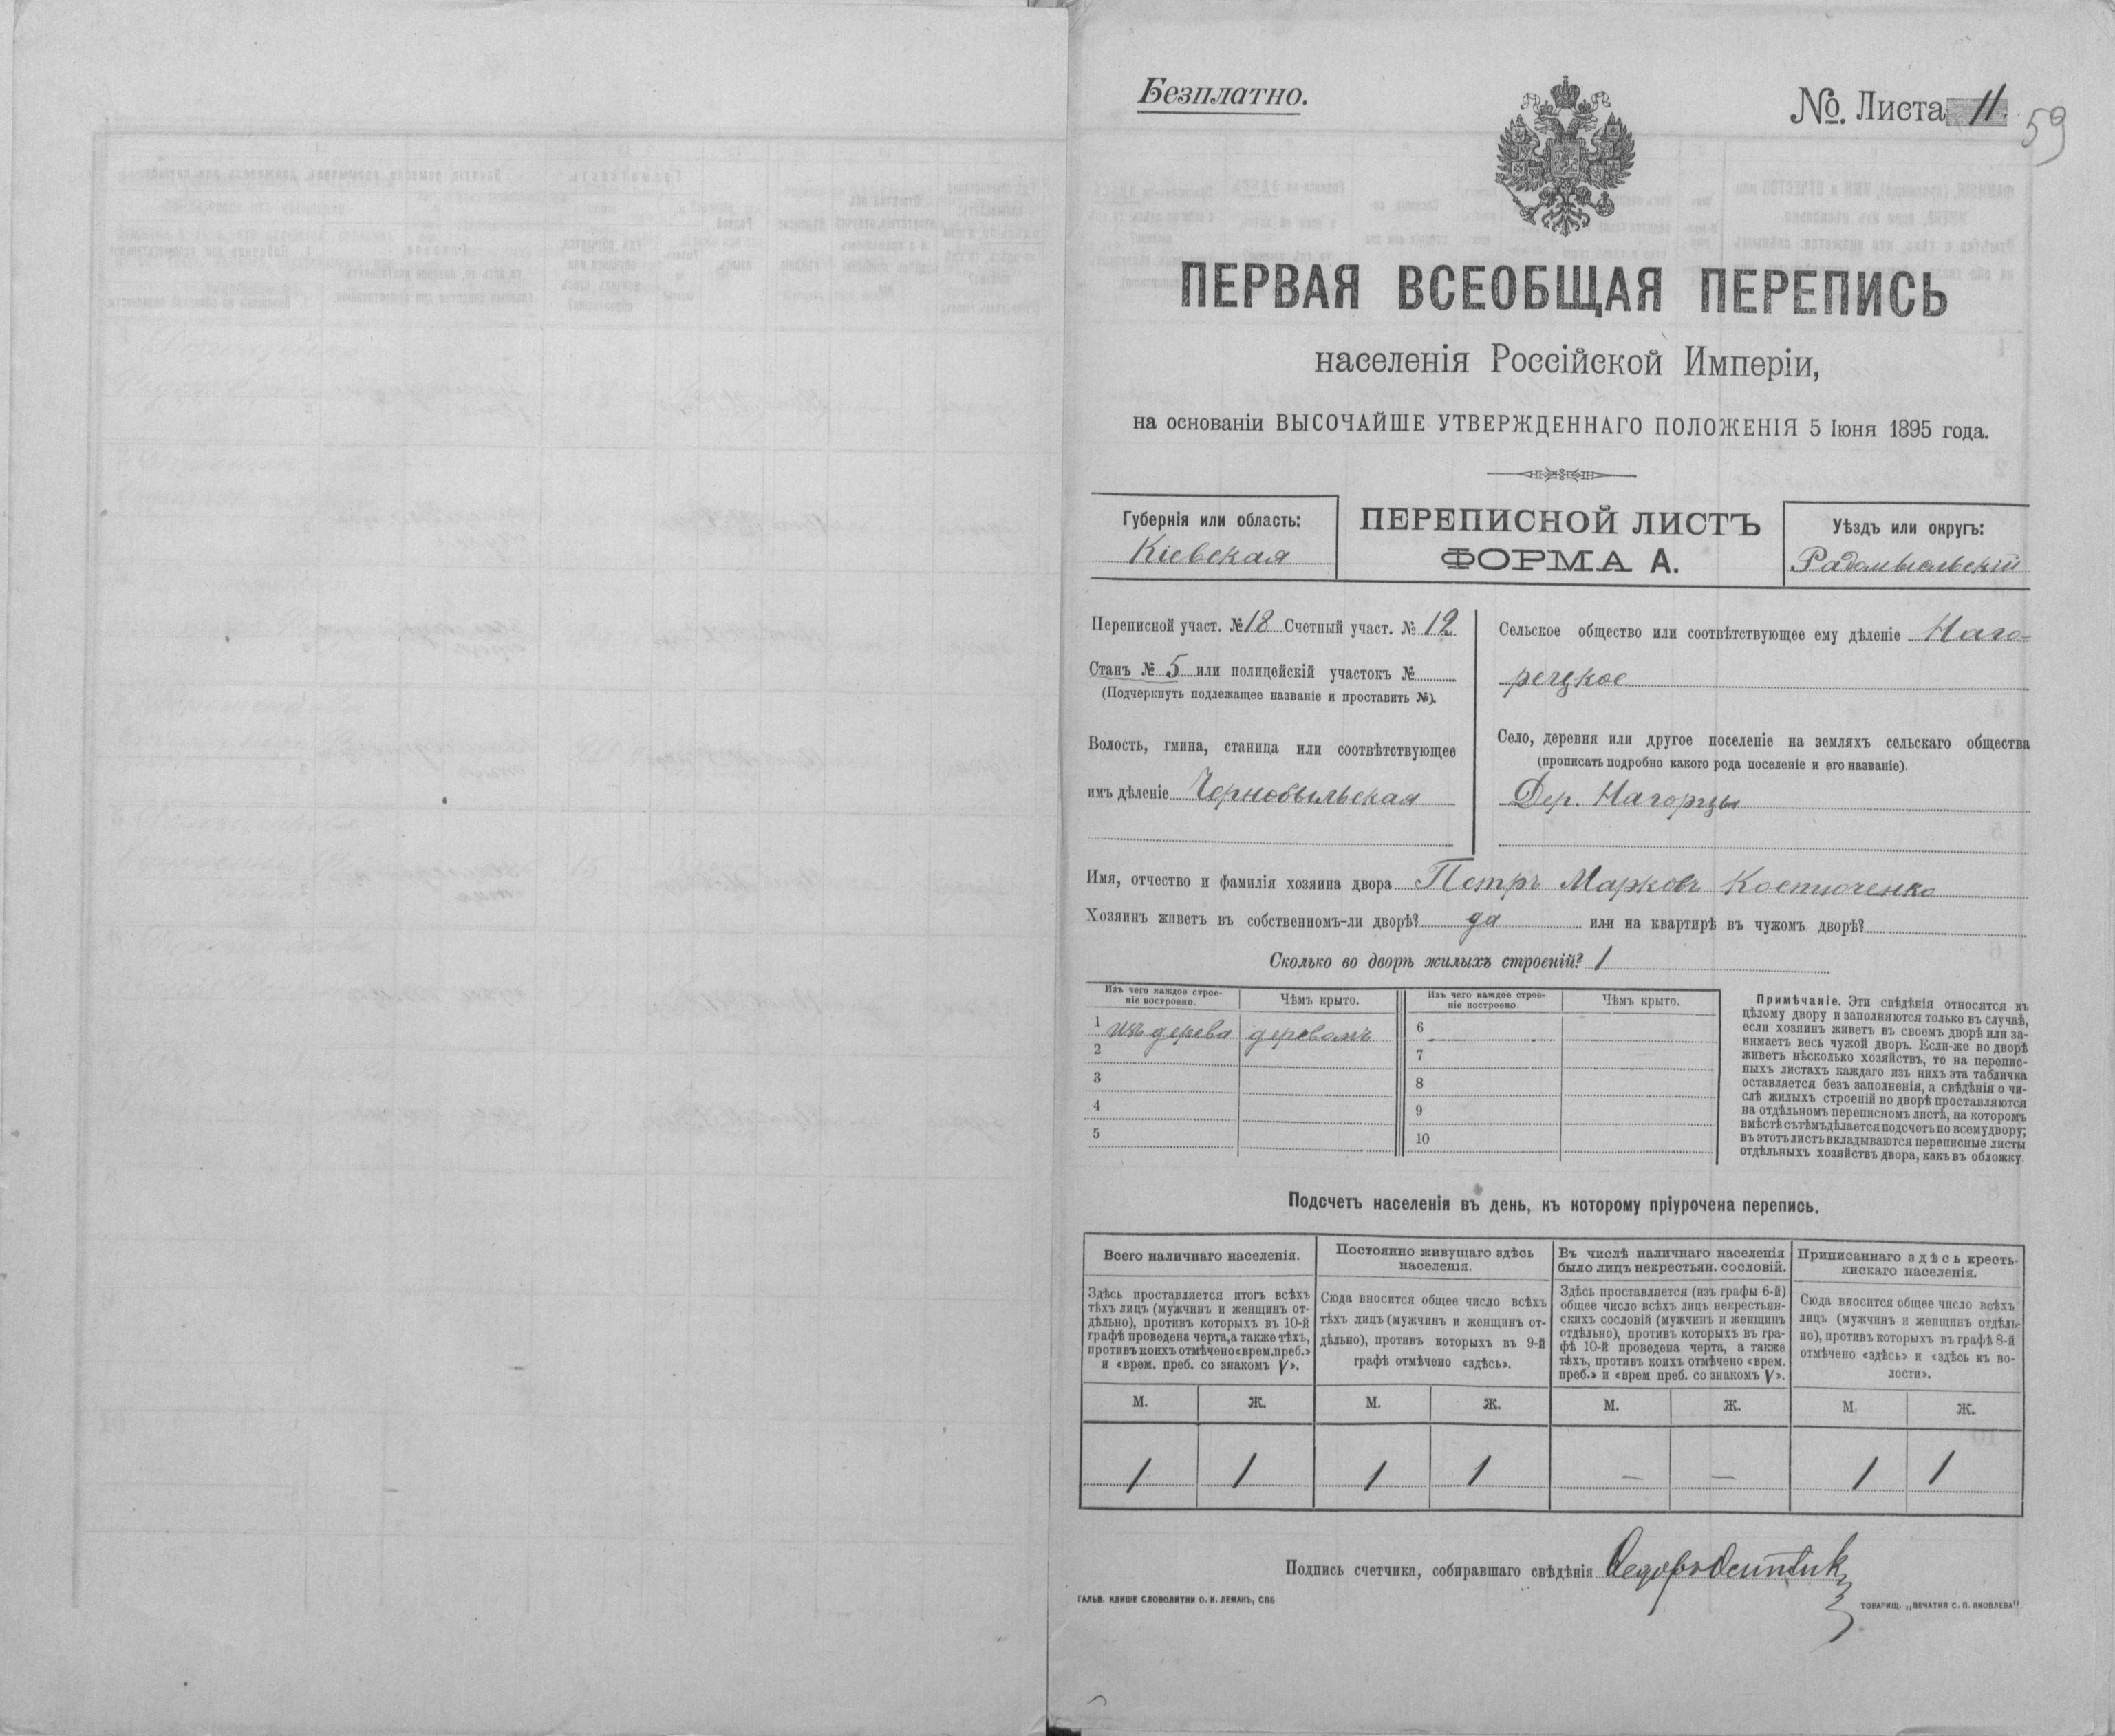 Безплатно.
№. Листа 11.
59
ПЕРВАЯ ВСЕОБЩАЯ ПЕРЕПИСЬ
населенія Россійской Имперіи,
на основаніи ВЫСОЧАЙШЕ УТВЕРЖДЕННАГО ПОЛОЖЕНІЯ 5 Іюня 1895 года.
Губернія или область:
Кіевская
ПЕРЕПИСНОЙ ЛИСТЪ
ФОРМА А.
Уѣздъ или округъ:
Радомысльскій
Переписной участ. № 18 Счетный участ. № 12
Станъ № 5 или полицейскій участокъ №
(Подчеркнуть подлежащее названіе и проставить №).
Волость, гмина, станица или соотвѣтствующее
имъ дѣленіе Чернобыльская
Сельское общество или соотвѣтствующее ему дѣленіе Наго-
рецкое
Село, деревня или другое поселеніе на земляхъ сельскаго общества
(прописать подробно какого рода поселеніе и его названіе).
Дер. Нагорцы
Имя, отчество и фамилія хозяина двора Петръ Марковъ Костюченко
Хозяинъ живетъ въ собственномъ-ли дворѣ? да или на квартирѣ въ чужомъ дворѣ?
Сколько во дворѣ жилыхъ строеній? 1
Изъ чего каждое строе-
ніе построено.
Чѣмъ крыто.
Изъ чего каждое строе-
ніе построено.
Чѣмъ крыто.
1 изъ дерева деревомъ
2
3
4
5
6
7
8
9
10
Примѣчаніе. Эти свѣдѣнія относятся къ
цѣлому двору и заполняются только въ случаѣ,
если хозяинъ живетъ въ своемъ дворѣ или за-
нимаетъ весь чужой дворъ. Если-же во дворѣ
живетъ нѣсколько хозяйствъ, то на перепис-
ныхъ листахъ каждаго изъ нихъ эта табличка
оставляется безъ заполненія, а свѣдѣнія о чи-
слѣ жилыхъ строеній во дворѣ проставляются
на отдѣльномъ переписномъ листѣ, на которомъ
вмѣстѣ съ тѣмъ дѣлается подсчетъ по всему двору;
въ этотъ листъ вкладываются переписные листы
отдѣльныхъ хозяйствъ двора, какъ въ обложку.
Подсчетъ населенія въ день, къ которому пріурочена перепись.
Всего наличнаго населенія.
Здѣсь проставляется итогъ всѣхъ
тѣхъ лицъ (мужчинъ и женщинъ от-
дѣльно), противъ которыхъ въ 10-й
графѣ проведена черта, а также тѣхъ,
противъ коихъ отмѣчено «врем. преб.»
и «врем. преб. со знакомъ V».
Постоянно живущаго здѣсь
населенія.
Сюда вносится общее число всѣхъ
тѣхъ лицъ (мужчинъ и женщинъ от-
дѣльно), противъ которыхъ въ 9-й
графѣ отмѣчено «здѣсь».
Въ числѣ наличнаго населенія
было лицъ некрестьян. сословій.
Здѣсь проставляется (изъ графы 6-й)
общее число всѣхъ лицъ некрестьян-
скихъ сословій (мужчинъ и женщинъ
отдѣльно), противъ которыхъ въ гра-
фѣ 10-й проведена черта, а также
тѣхъ, противъ коихъ отмѣчено «врем.
преб.» и «врем преб. со знакомъ V».
Приписаннаго здѣсь кресть-
янскаго населенія.
Сюда вносится общее число всѣхъ
лицъ (мужчинъ и женщинъ отдѣль-
но), противъ которыхъ въ графѣ 8-й
отмѣчено «здѣсь» и «здѣсь къ во-
лости».
М. Ж. М. Ж. М. Ж. М. Ж.
1 1 1 1 — — 1 1
Подпись счетчика, собиравшаго свѣдѣнія
ГАЛЬВ. КЛИШЕ СЛОВОЛИТНИ О. И. ЛЕМАНЪ, СПБ
ТОВАРИЩ. „ПЕЧАТНЯ С. П. ЯКОВЛЕВА"